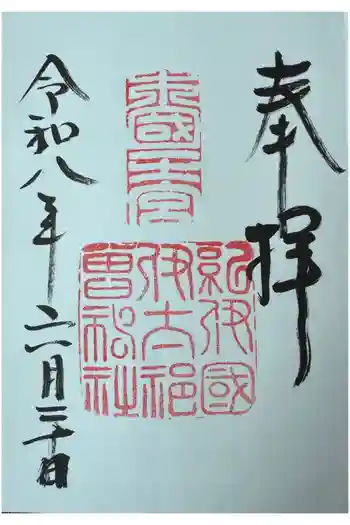 奉拝
木國一宮
紀伊國
伊太祁
曽神社
令和八年二月二十日